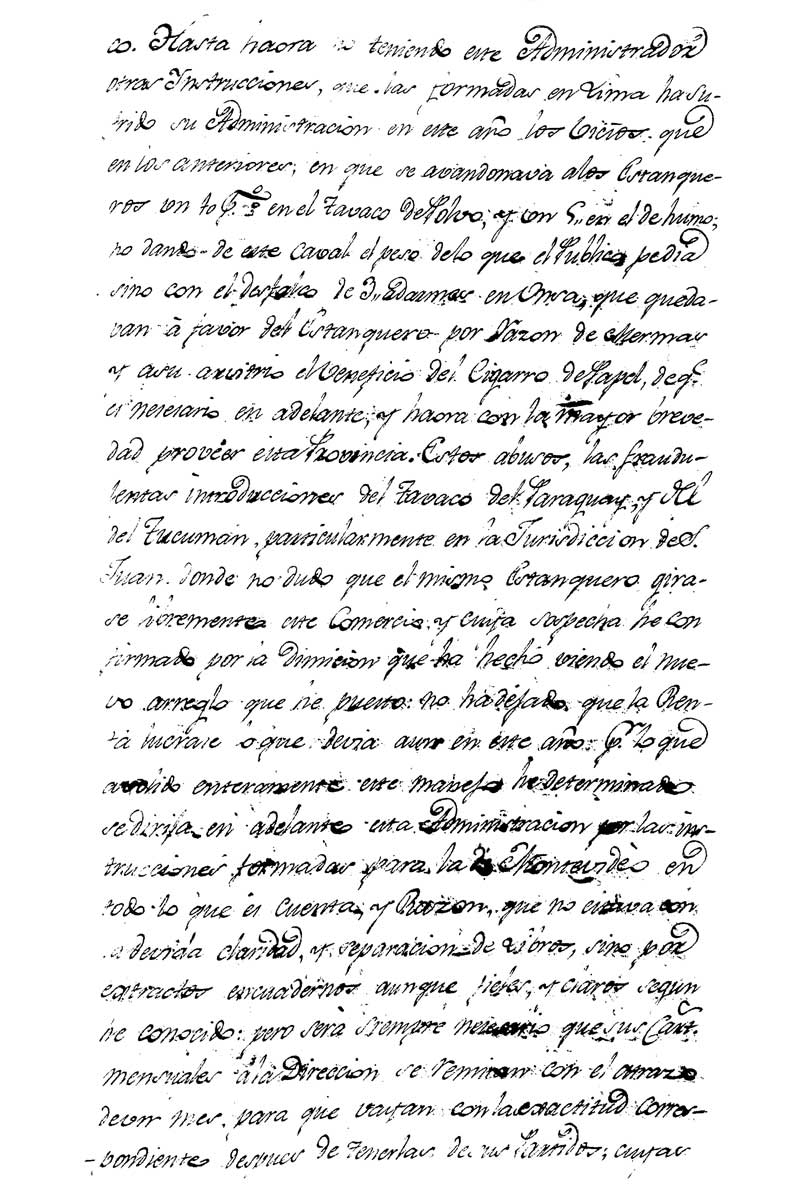 co. Hasta haora no teniendo este Administrador
otras Instrucciones, que las formadas en Lima ha su-
frido su Administracion en este año los vicios que
en los anteriores, en que se avandonava alos Estanque-
ros un 10 p.% en el Tavaco de Polvo, y con 5,, en el de humo;
no dando de este caval el peso delo que el Publico pedia
sino con el desfalco de 3,, Adarmes en Onsa, que queda-
van à favor del Estanquero por Razon de Mermas
y asu arvitrio el Veneficio del Cigarro de Papel, de q.e
es nesesario en adelante, y haora con la mayor breve-
dad proveer esta Provincia. Estos abusos, las fraudu-
lentas introducciones del Tavaco del Paraguay, y del
del Tucuman, particularmente en la Jurisdiccion de S.
Juan donde no dudo que el mismo Estanquero gira-
se libremente este Comercio, y cuya sospecha he con
firmado por la Dimicion que ha hecho viendo el nue-
vo arreglo que he puesto: no ha dejado que la Ren-
ta lucrase lo que devia aun en este año: p.r lo que
avolido enteramente este manejo he determinado
se dirija en adelante esta Administracion por las ins-
trucciones formadas para la de Montevideo en
todo lo que es Cuenta, y Razon, que no estava con
la devida claridad, y separacion de Libros, sino por
extractos encuadernos aunque fieles, y claros segun
he conocido: pero serà siempre nesesario que sus Cart.s
mensuales à la Direccion se remitan con el atrazo
de un mes, para que vayan con la exactitud corres-
pondiente despues de tenerlas de sus Partidos; cuyas